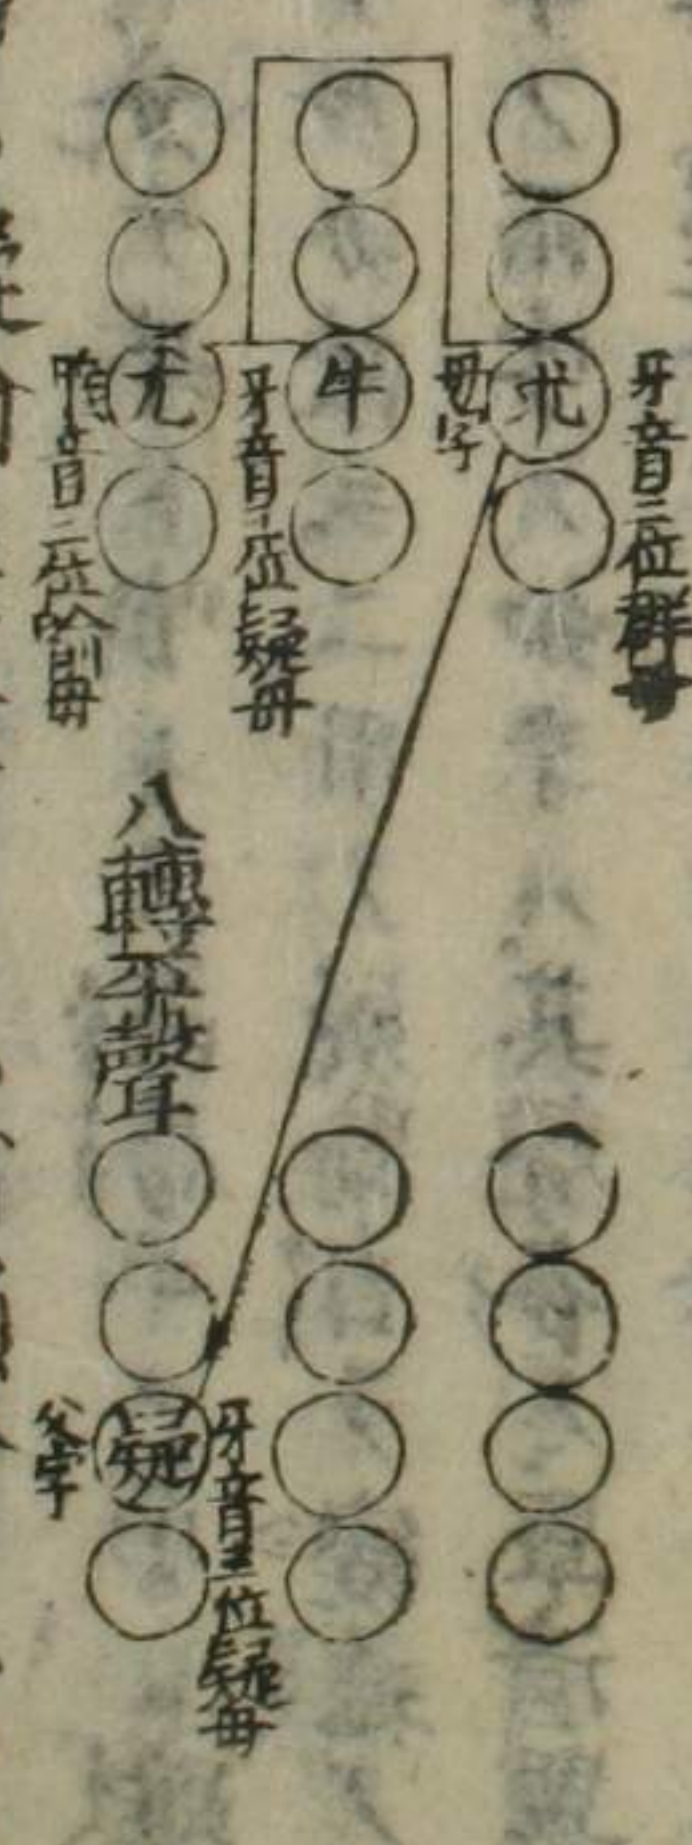 牙音三位群母
母字
牛
牙音三位疑母
尤
喉音三位喻母
八轉平聲
牙音三位疑母
疑
父字